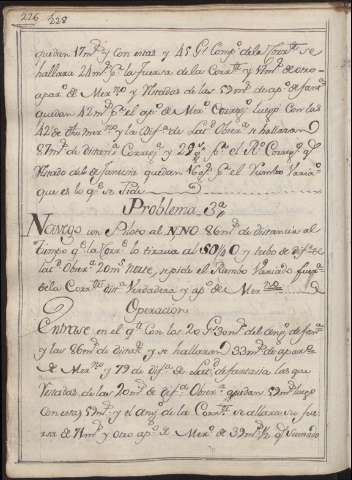 226
228
quedan 17 m.s y con estas y 45 G.s Comp.o de la Corr.te se
hallara 24 m.s p.a la fuersa de la Corr.te y 17 m.s de otro
apar.o de Mer.no y Restadas de las 59 m.s de ap.o de fan.a
quedan 42 m.s p.r el ap.o de Mer.o Correg.o luego Con las
42 de de Lat.d Obser.a se hallaran
87 m.s de distan.a Correg.a y 29 p.r el R.o Correg.o q.e
Restado del de fantasia quedan 16 p.r el Rumbo Varia.o
que es lo q.e se Pide
Problema 3.a
Navego un Piloto al NNO 86 m.s de distancia al
tiempo q.e la Corr.te lo tirava al SO¼O y tubo de dif.a de
Lat.d Obser.a 20 m.s norte, se pide el Rumbo Variado fuer.a
de la Corr.te dis.a Verdadera y ap.o de Mer
Operacion
Entrase en el q.te con los 20 G.s 30 m.s del ang.o de fan.a
y las 86 m.s de dista.a y se hallaran 33 m.s de apar.o
de Mer.no y 79 de dif.a de Lat.d de fantasia las que
Restadas de las 20 m.s de dif.a Obser.a quedan 59 m.s luego
Con estas 59 m.s y el ang.o de la Corr.te se allara su fu
ersa de 71 m.s y otro ap.o de Mer.o de 39 m.s ½ q.e Sumado